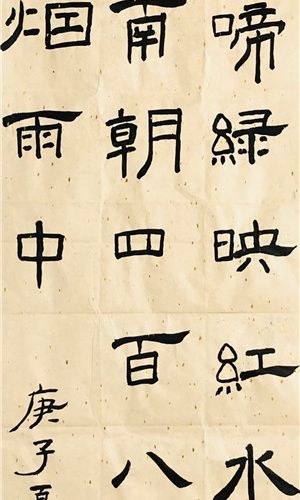 啼緑映紅水
南朝四百八
烟雨中
庚子